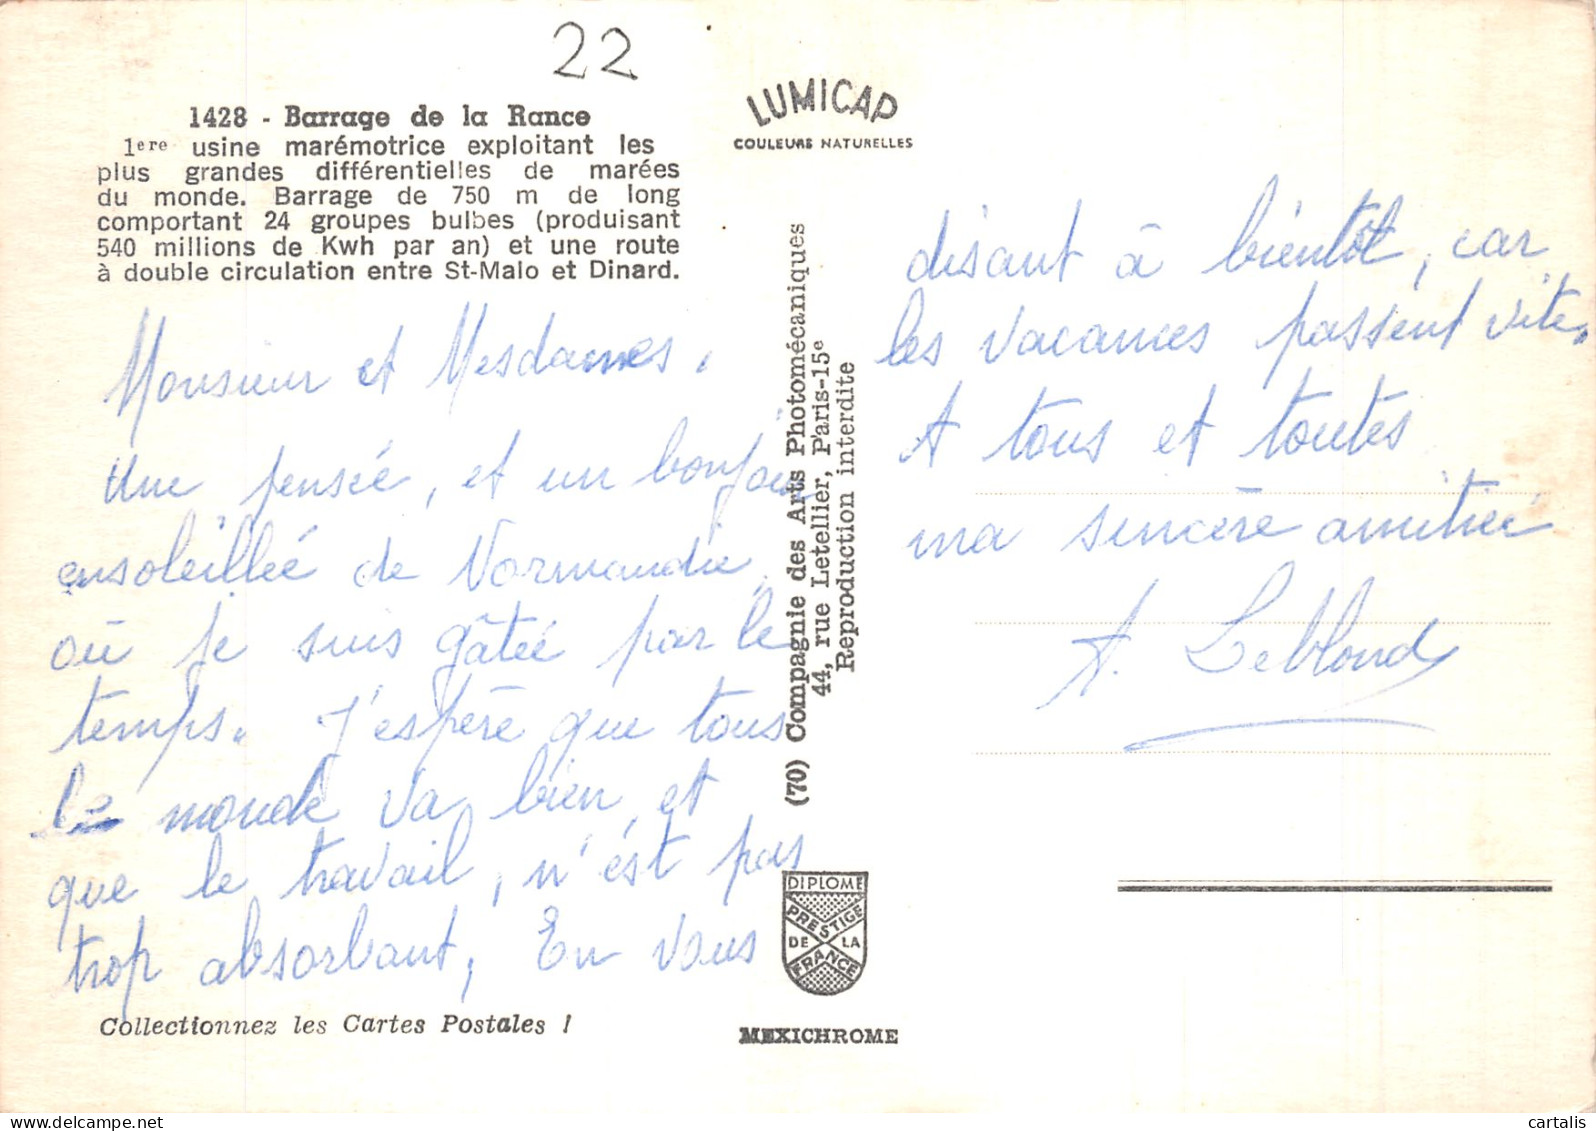 22
1428 - Barrage de la Rance
1ere usine marémotrice exploitant les
plus grandes différentielles de marées
du monde. Barrage de 750 m de long
comportant 24 groupes bulbes (produisant
540 millions de Kwh par an) et une route
à double circulation entre St-Malo et Dinard.
Monsieur et Mesdames,
Une pensée, et un bonjour
ensoleillée de Normandie,
où je suis gâtée par le
temps. J'espère que tous
le monde va bien, et
que le travail, n'est pas
trop absorbant, En vous
Collectionnez les Cartes Postales !
LUMICAP
COULEURS NATURELLES
(70) Compagnie des Arts Photomécaniques
44, rue Letellier, Paris-15e
Reproduction interdite
DIPLOME
PRESTIGE
DE LA
FRANCE
MEXICHROME
disant à bientôt, car
les vacances passent vite.
A tous et toutes
ma sincère amitiée
A. Leblond
delcampe.net
cartalis